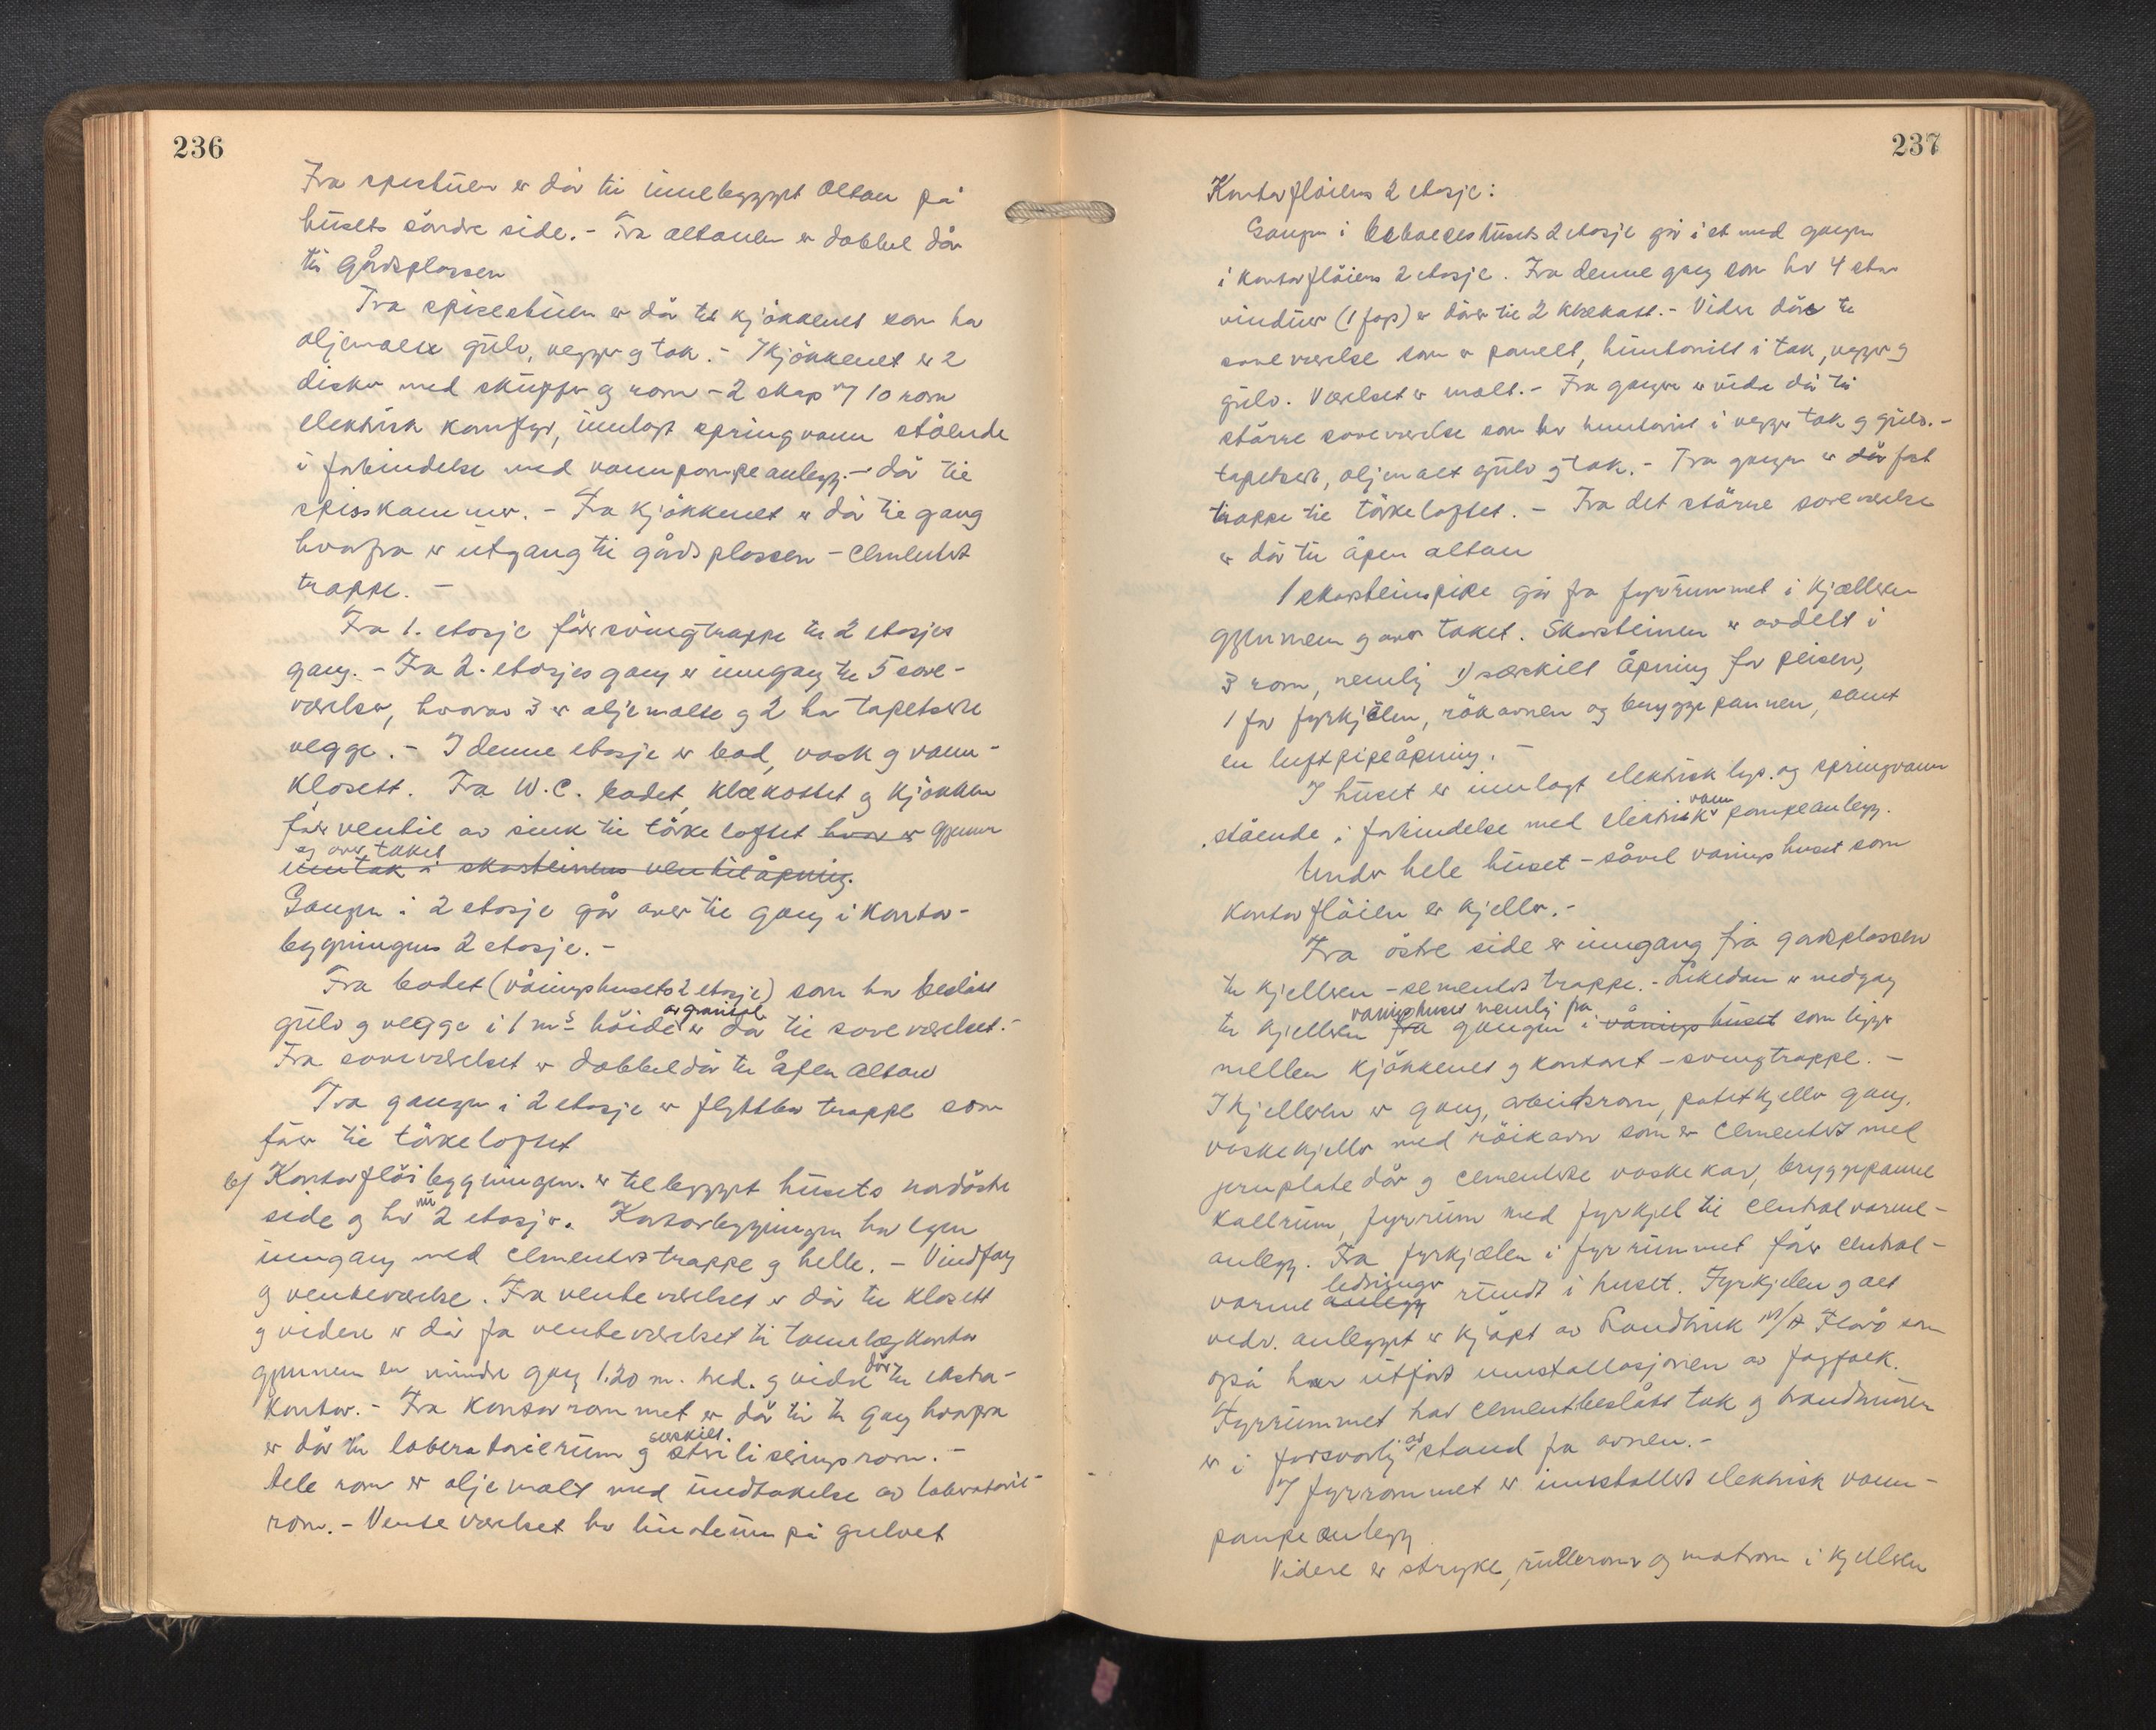 236
Fra spisstuen er dör til innebygget Altan på
husets söndre side. - Fra altanen er dobbel dör
til Gårdsplassen
Fra spisestuen er dör til kjökkenet som har
oljemalt gulv, vegger og tak. - I kjökkenet er 2
disker med skuffer og rom - 2 skap m/ 10 rom
elektrisk komfyr, innlagt springvann stående
i forbindelse med vannpumpeanlegg. - dör til
spisskammer. - Fra kjökkenet er dör til gang
hvorfra er utgang til gårdsplassen - Cementert
trappe. -
Fra 1. etasje förer svingtrappe til 2 etasjes
gang. - Fra 2. etasjes gang er inngang til 5 sove-
værelser, hvorav 3 er oljemalte og 2 har tapetserte
vegge. - I denne etasje er bad, vask og vann-
klosett. Fra W.C. badet, klækottet og kjökken
förer ventil av sink til törkeloftet hvor er gjennem
og over taket
inntak i skorsteinens ventilåpning.
Gangen i 2 etasje går over til gang i Kontor-
bygningens 2 etasje. -
Fra badet (våningshusets 2 etasje) som har beslått
av granitol
gulv og vegge i 1 m's höide er dör til soveværelset. -
Fra soveværelset er dobbeldör til åpen Altan
Fra gangen i 2 etasje er flyttbar trappe som
förer til törkeloftet
b/ Kontorflöibygningen. er tilbygget husets nordöstre
nu
side og har 2 etasjer. Kontorbygningen har egen
inngang med Cementert trappe og helle. - Vindfang
og venteværelse. Fra venteværelset er dör til klosett
og videre er dör fra venteværelset til tannlægekontor
dör
gjennem en mindre gang 1.20 m. bred. og videre til ekstra-
kontor. - Fra Kontorrommet er dör til gang hvorfra
særskilt.
er dör til laboratorierum og steriliseringsrom. -
Hele rom er oljemalt med undtakelse av laboratorie-
rom. - Venteværelset har linoleum på gulvet
237
Kontorflöiens 2 etasje:
Gangen i beboelseshusets 2 etasje går i ett med gangen
i kontorflöiens 2 etasje. Fra denne gang som har 4 etas
vinduer (1 fags) er dörer til 2 klækott. - Videre dör til
soveværelse som er panelt, huntonitt i tak, vegger og
gulv. Værelset er malt. - Fra gangen er videre dör til
större soveværelse som har huntonit i vegger tak og gulv. -
tapetsert, oljemalt gulv og tak. - Fra gangen er dör fast
trappe til törkeloftet. - Fra det större soveværelse
er dör til åpen altan
1 skorsteinspipe går fra fyrrummet i kjælleren
gjennem og over taket. Skorsteinen er avdelt i
3 rom, nemlig 1) særskilt åpning for peisen,
1 for fyrkjelen, rökovnen og bryggepannen, samt
en luftpipeåpning. -
I huset er innlagt elektrisk lys. og springvann
vann
stående i forbindelse med elektrisk pumpeanlegg.
Under hele huset - såvel våningshuset som
kontorflöien er kjeller. -
Fra östre side er inngang fra gårdsplassen
til kjelleren - sementert trappe. - Likedan er nedgang
våningshuset nemlig fra
til kjelleren fra gangen i våningshuset som ligger
mellem kjökkenet og kontoret - svingtrappe. -
I kjelleren er gang, arbeidsrom, potetkjeller gang,
vaskekjeller med röikovn som er Cementert med
jernplatedör og Cementerte vaskekar, bryggepanne
kullrum, fyrrum med fyrkjel til Centralvarme-
anlegg. Fra fyrkjælen i fyrrummet förer central-
ledninger
varme anlegg rundt i huset. Fyrkjelen og alt
vedr. anlegget er kjöpt av Landteknik A/S Florö som
også har utfört innstallasjonen av fagfolk.
Fyrrummet har Cementbeslått tak og brandmuren
av
er i forsvarlig stand fra ovnen. -
I fyrrommet er innstallert elektrisk vann-
pumpeanlegg
Videre er stryke, rullerom og matrom i kjelleren